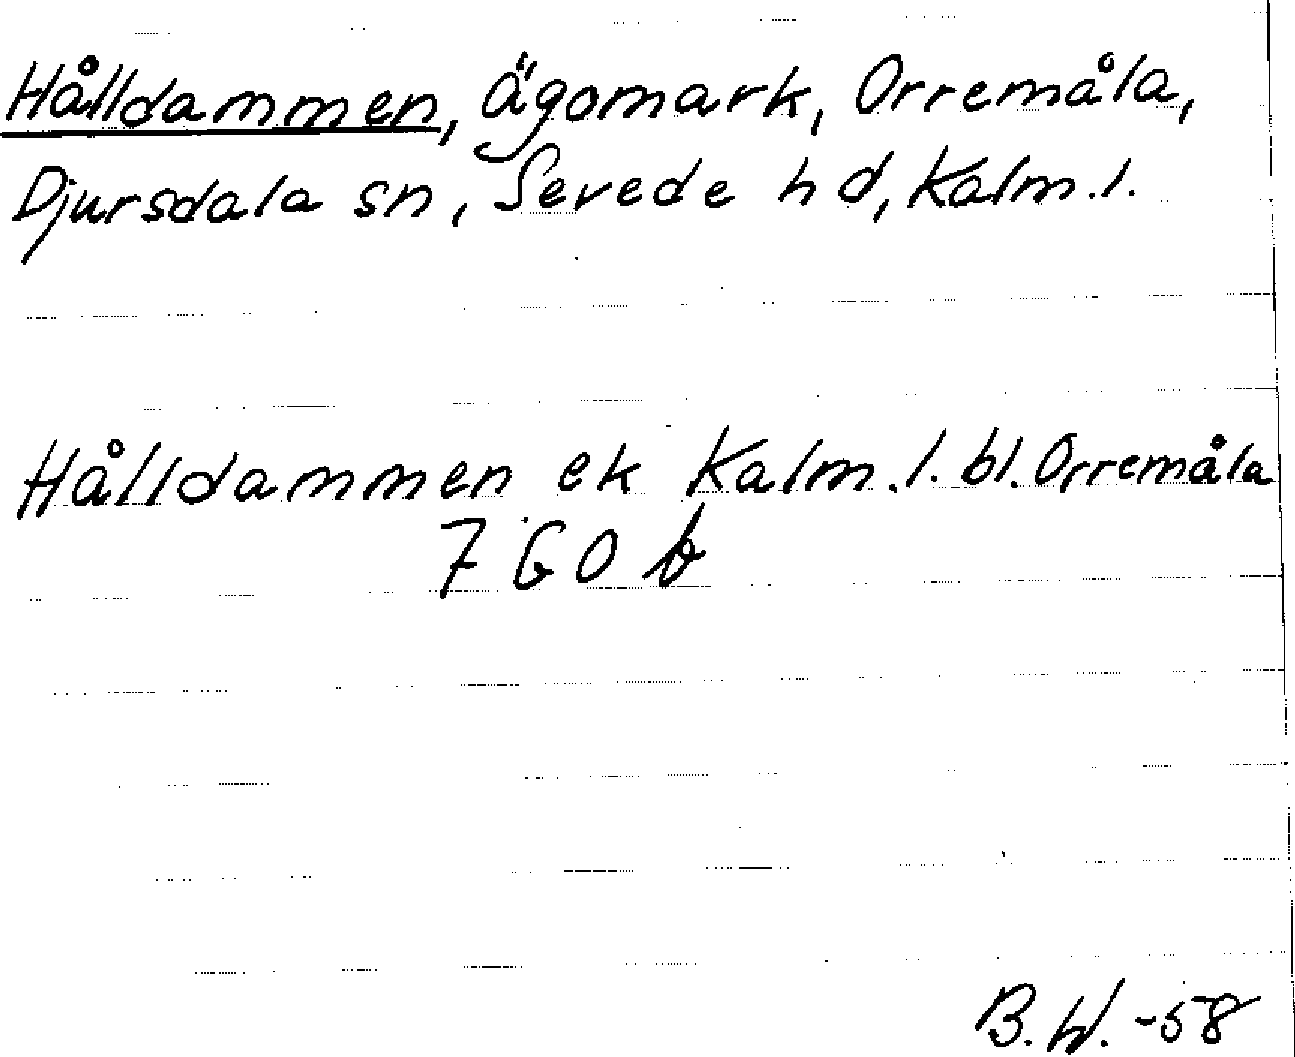 Hålldammen, Ägomark, Orremåla,
Djursdala sn, Sevede hd, Kalm.l.
Hålldammen ek Kalm.l. bl. Orremåla
7 G 0 b
B.W. -58